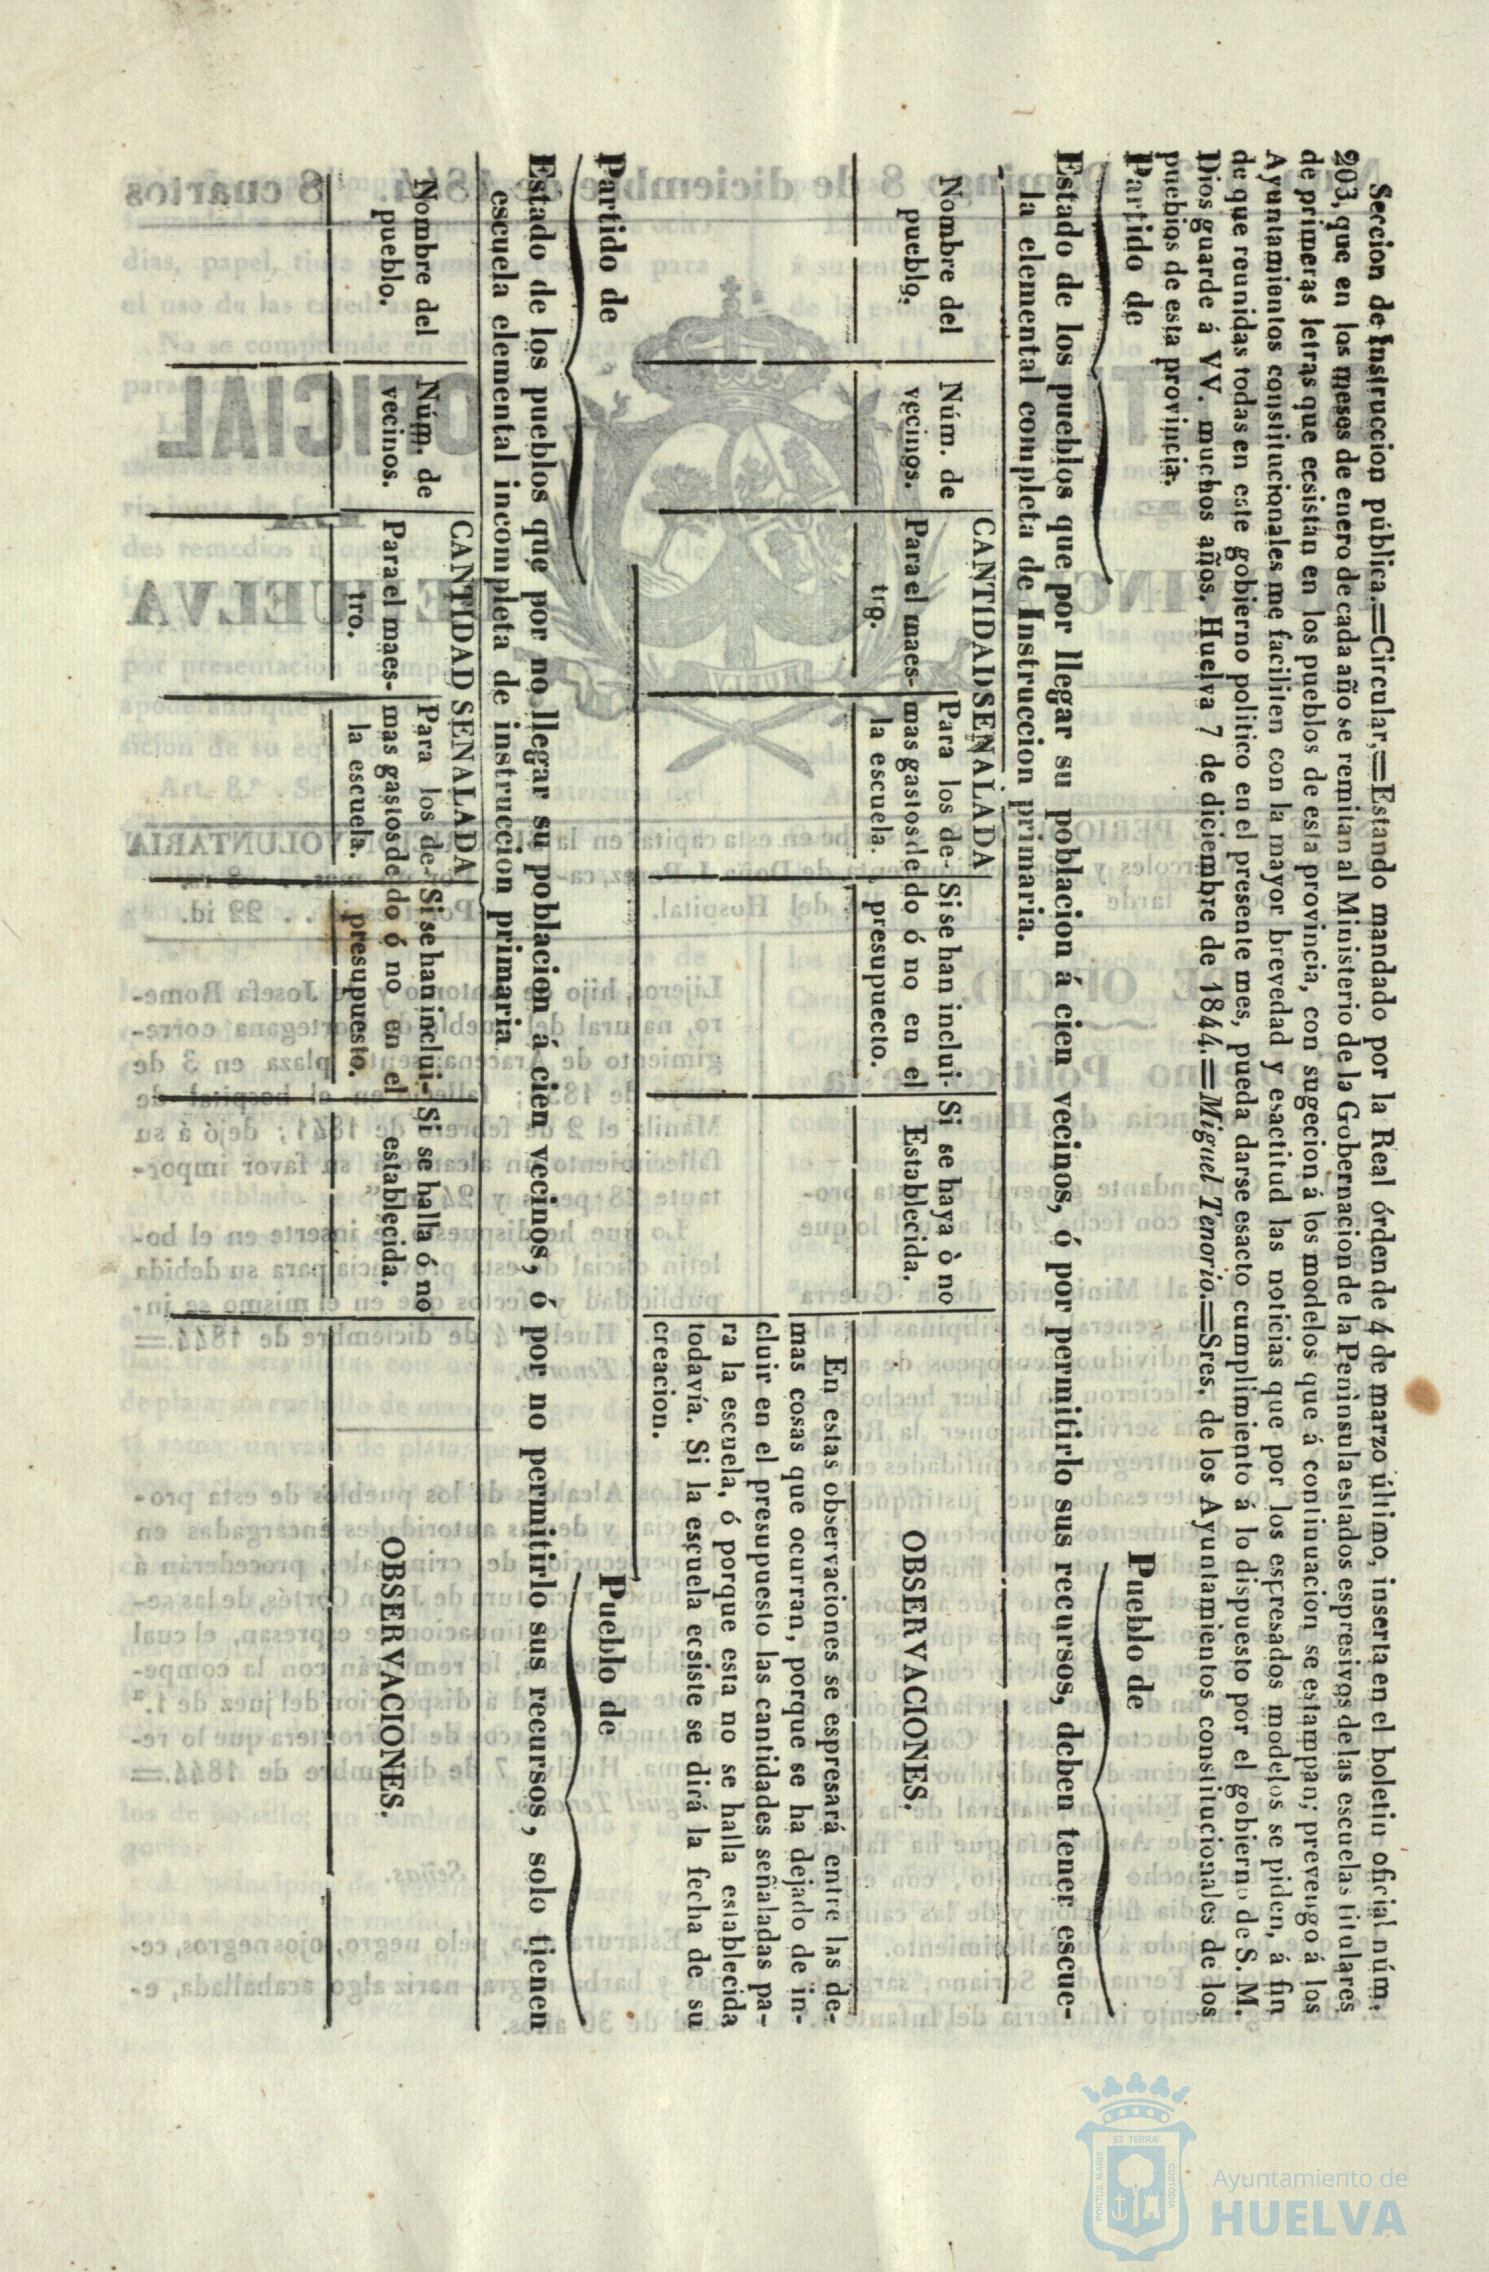 Seccion de Instruccion pública.=Circular.=Estando mandado por la Real órden de 4 de marzo último, inserta en el boletin oficial núm.
203, que en los meses de enero de cada año se remitan al Ministerio de la Gobernacion de la Península estados espresivos de las escuelas titulares
de primeras letras que ecsistan en los pueblos de esta provincia, con sugecion á los modelos que á continuacion se estampan; prevengo á los
Ayuntamientos constitucionales me faciliten con la mayor brevedad y esactitud las noticias que por los espresados modelos se piden, á fin
de que reunidas todas en este gobierno político en el presente mes, pueda darse esacto cumplimiento á lo dispuesto por el gobierno de S. M.
Dios guarde á VV. muchos años. Huelva 7 de diciembre de 1844.=Miguel Tenorio.=Sres. de los Ayuntamientos constitucionales de los
pueblos de esta provincia.
Partido de Pueblo de
Estado de los pueblos que por llegar su poblacion á cien vecinos, ó por permitirlo sus recursos, deben tener escue-
la elemental completa de Instruccion primaria.
CANTIDAD SEÑALADA
Nombre del
pueblo.
Núm. de
vecinos.
Para el maes-
tro.
Para los de-
mas gastos de
la escuela.
Si se han inclui-
do ó no en el
presupuecto.
Si se haya ò no
Establecida.
OBSERVACIONES.
En estas observaciones se espresará entre las de-
mas cosas que ocurran, porque se ha dejado de in-
cluir en el presupuesto las cantidades señaladas pa-
ra la escuela, ó porque esta no se halla establecida
todavía. Si la escuela ecsiste se dirá la fecha de su
creacion.
Partido de Pueblo de
Estado de los pueblos que por no llegar su poblacion á cien vecinos, ó por no permitirlo sus recursos, solo tienen
escuela elemental incompleta de instruccion primaria
CANTIDAD SENALADA
Nombre del
pueblo.
Núm. de
vecinos.
Para el maes-
tro.
Para los de-
mas gastos de
la escuela.
Si se han inclui-
do ó no en el
presupuesto.
Si se halla ó no
establecida.
OBSERVACIONES.
ET TERRÆ
PORTUS MARIS
CUSTODIA
Ayuntamiento de
HUELVA